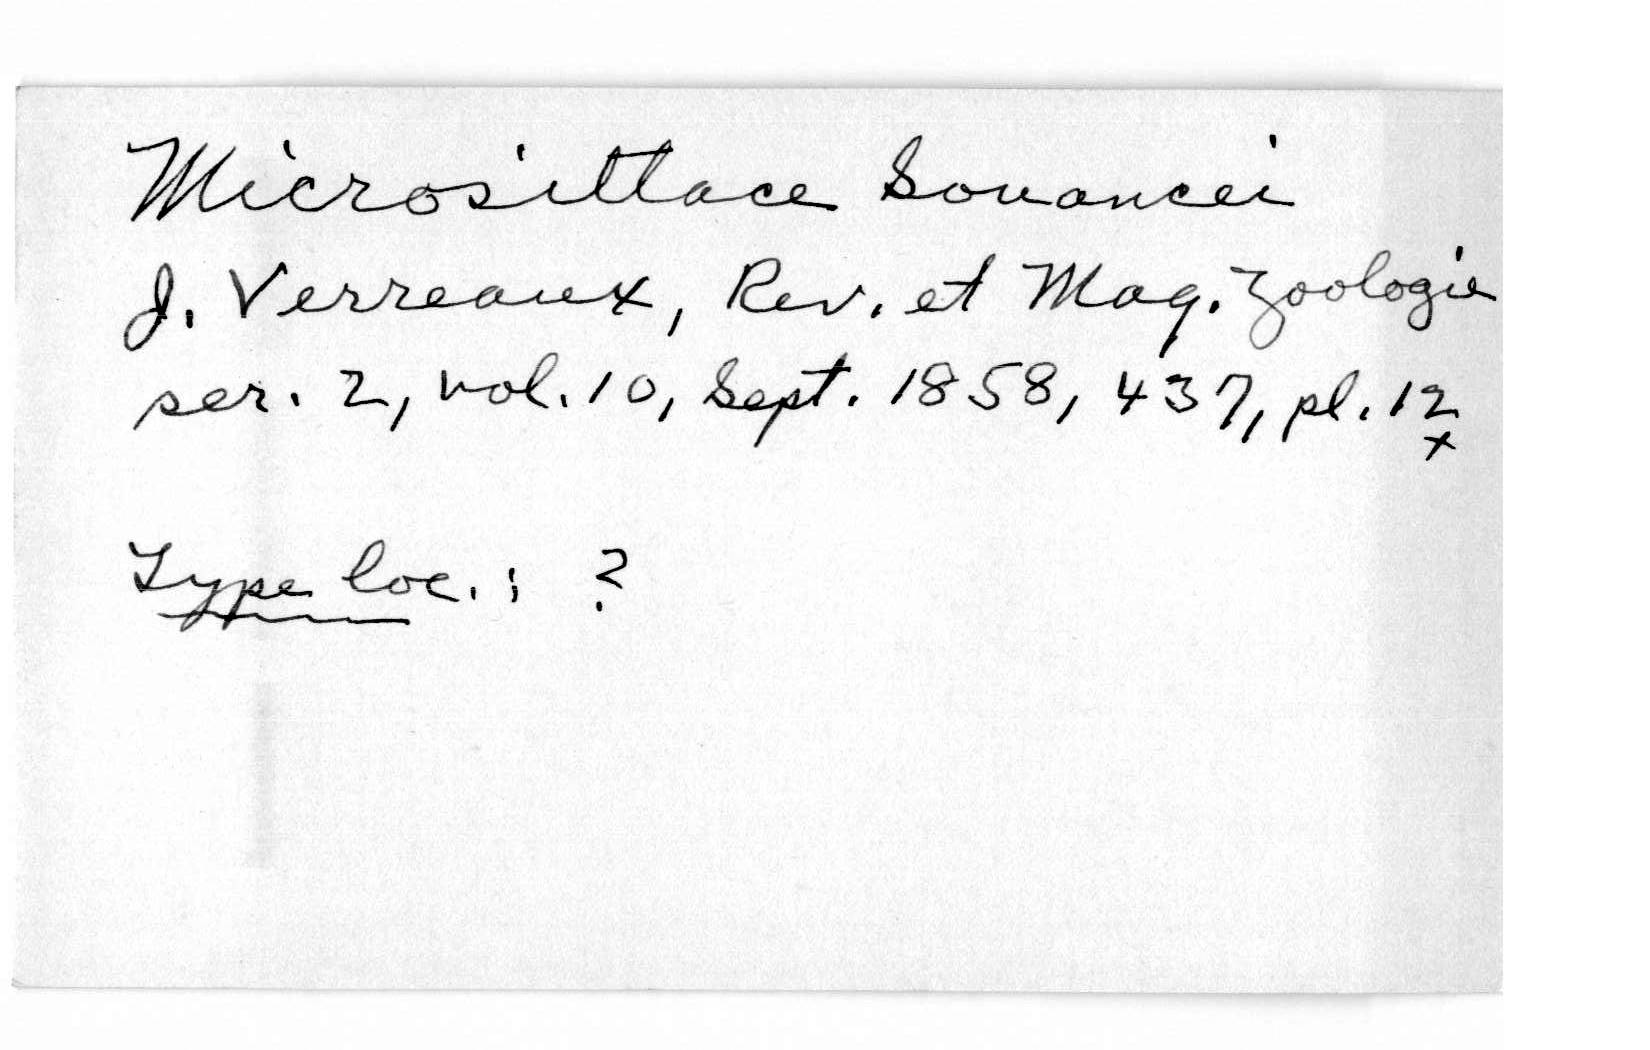 Microsittace Souancei
J. Verreaux, Rev. et Mag. Zoologie
ser. 2, vol. 10, Sept. 1858, 437, pl. 12
x
Type loc.: ?